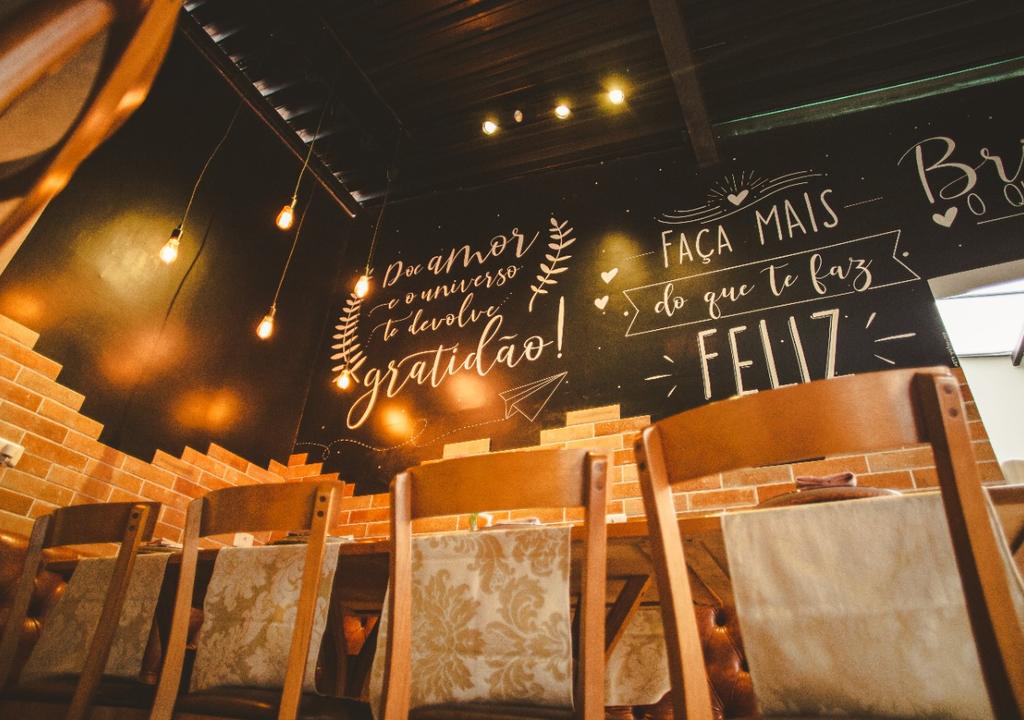 Doe amor
e o universo
te devolve
gratidão!
FAÇA MAIS
do que te faz
FELIZ
Bri
O Q